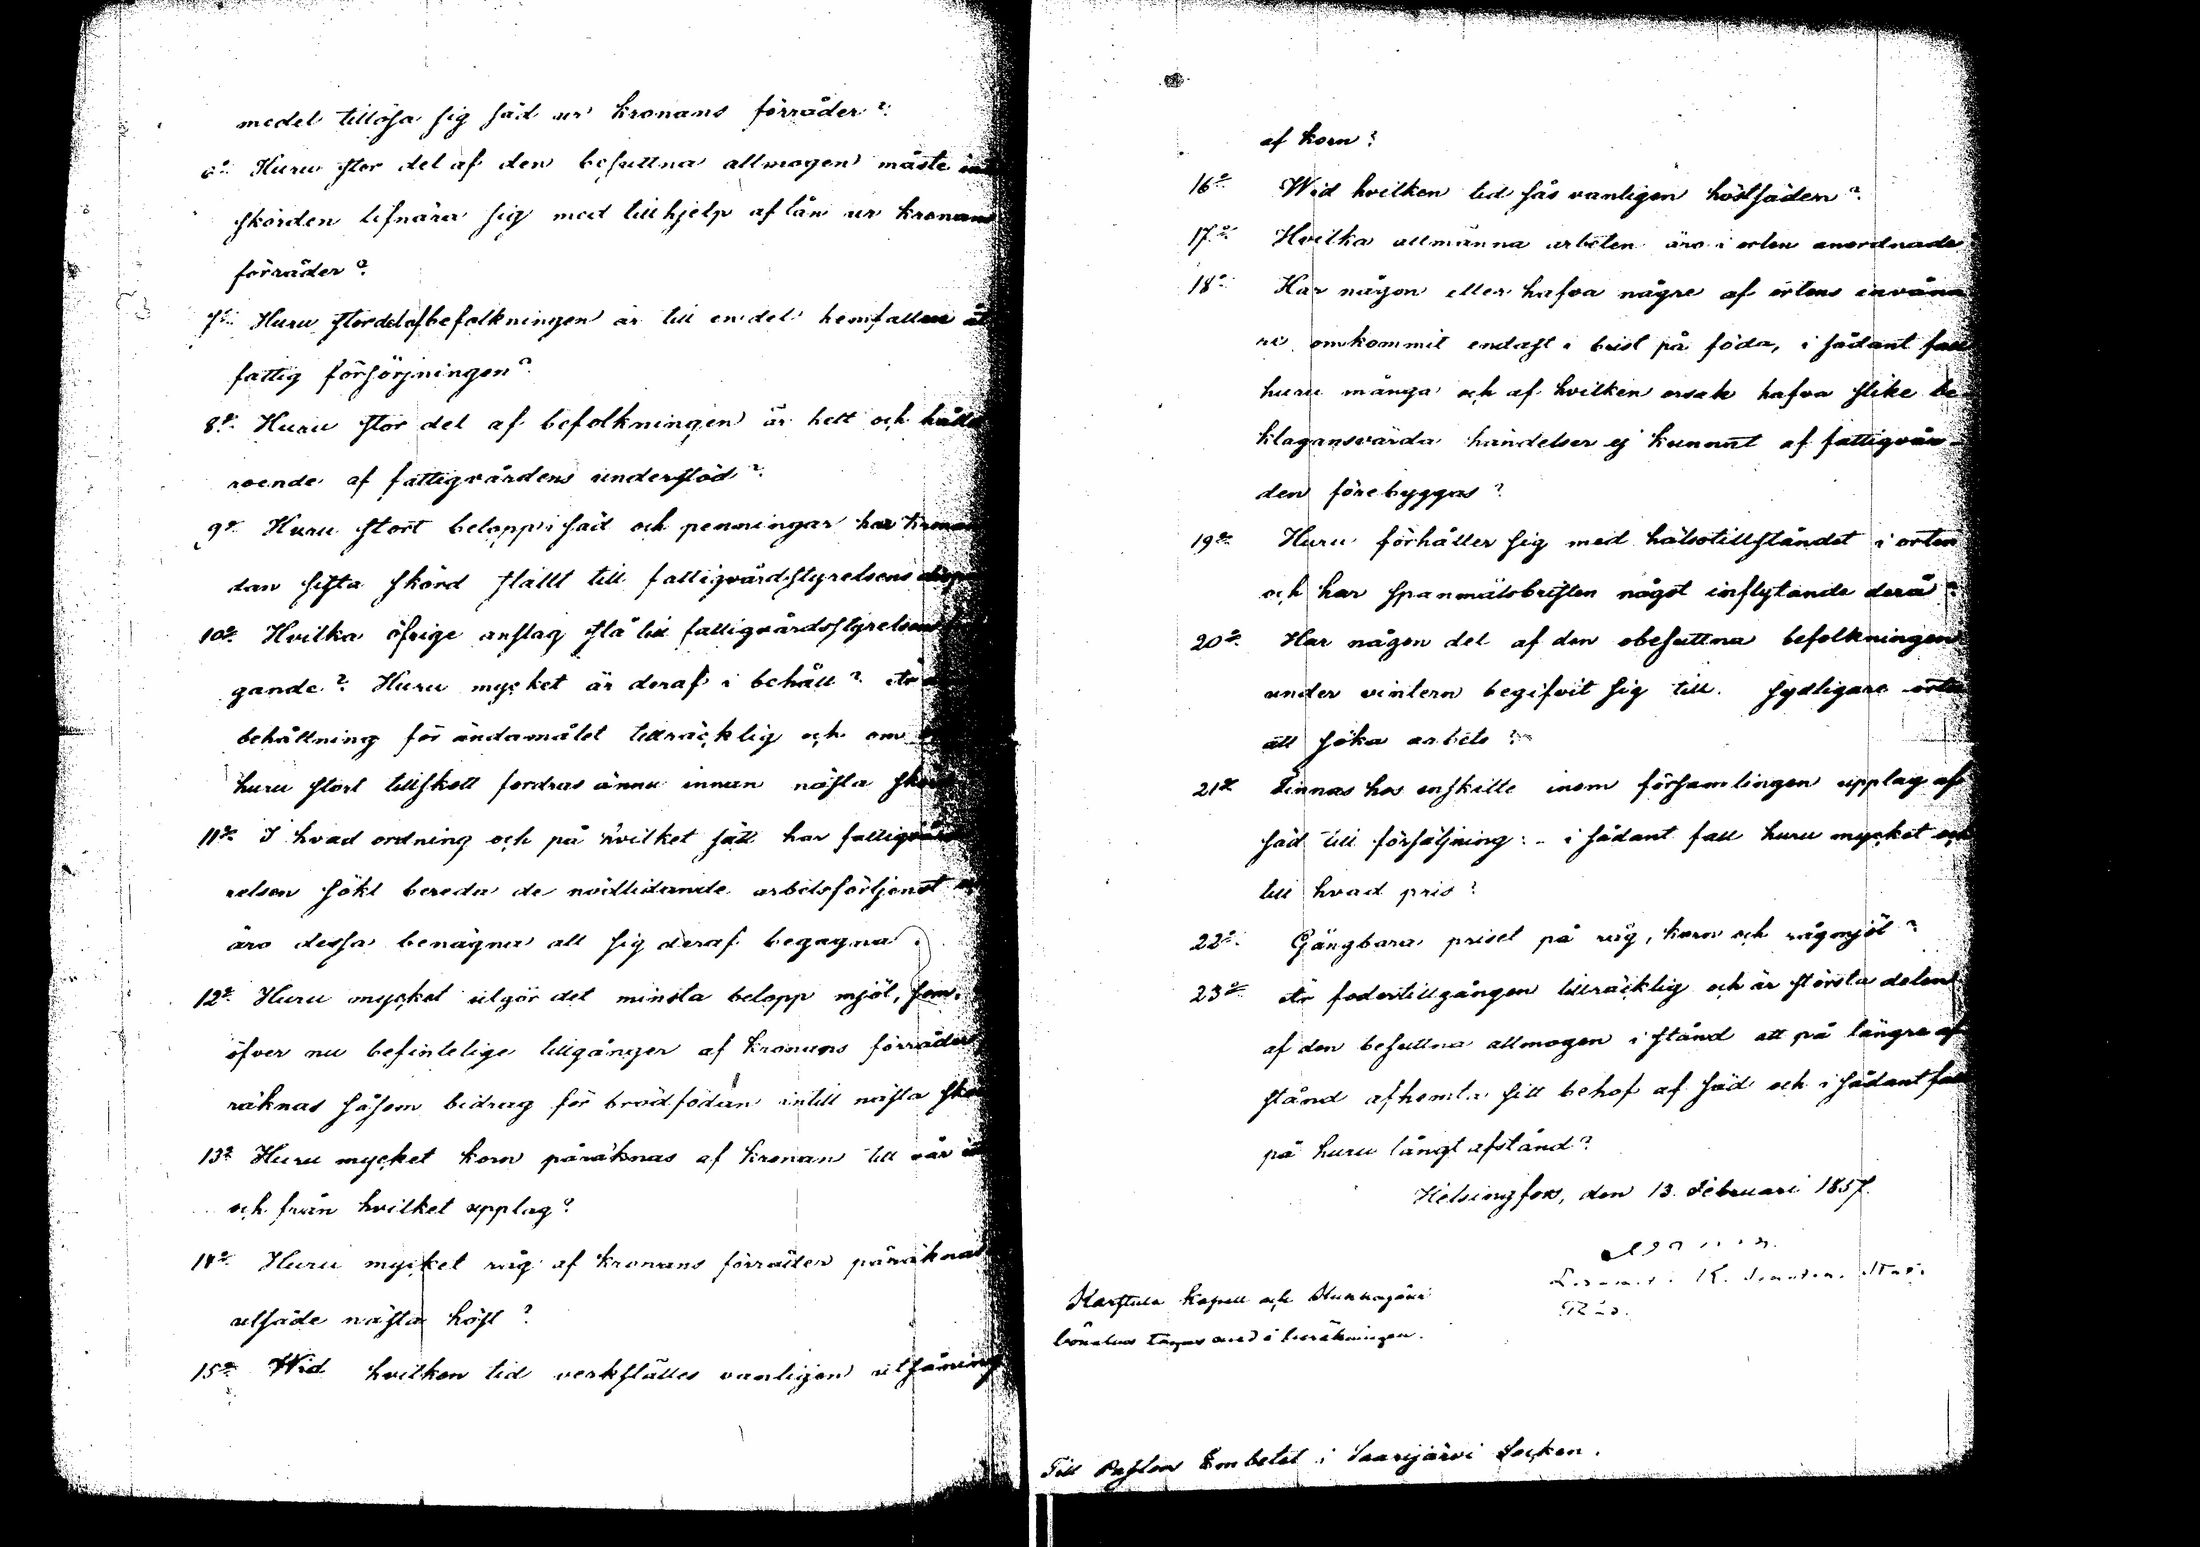 medel tillösa sig säd ur kronans förråder?
6:o Huru stor del af den besuttna allmogen måste
skörden lifnära sig med tillhjelp af lån ur kronans
förråder?
7:o Huru stor del af befolkningen är till en del hemfallen
fattig försörjningen?
8:o Huru stor del af befolkningen är helt och
roende af fattigvårdens understöd?
9:o Huru stort belopp i säd och penningar har
dan sista skörd ställt till fattigvårdsstyrelsens
10:o Hvilka öfrige anslag stå till fattigvårdsstyrelsens
gande? Huru mycket är deraf i behåll? Är
behållning för ändamålet tillräcklig och om
huru stort tillskott fordras ännu innan nästa
11:o I hvad ordning och på hvilket sätt har
relsen sökt bereda de nödlidande arbetsförtjenst
äro dessa benägna att sig deraf begagna
12:o Huru mycket utgör det minsta belopp mjöl, som,
öfver nu befintelige tillgånger af kronans förråder
räknas såsom bidrag för brödfödan intill nästa
13:o Huru mycket korn påräknas af kronan till vår
och från hvilket upplag?
14:o Huru mycket råg af kronans förråder påräknas
utsäde nästa höst?
15:o Wid hvilken tid verkställes vanligen utsåning
af korn?
16:o Wid hvilken tid sås vanligen höstsäden?
17:o Hvilka allmänna arbeten äro i orten anordnade
18:o Har någon eller hafva någre af ortens invåna
re omkommit endast i brist på föda, i sådant fall
huru många och af hvilken orsak hafva slike be-
klagansvärda händelser ej kunnat af fattigvår-
den förebyggas?
19:o Huru förhåller sig med hälsotillståndet i orten
och har spanmålsbristen något inflytande derå?
20:o Har någon del af den obesuttna befolkningen
under vintern begifvit sig till sydligare orter
att söka arbete?
21:o Finnas hos enskilte inom församlingen upplag af
säd till försäljning:- i sådant fall huru mycket och
till hvad pris?
22:o Gångbara priset på råg, korn och rågmjöl?
23:o Är fodertillgången tillräcklig och är största delen
af den besuttna allmogen i stånd att på längre af
stånd afhemta sitt behof af säd och i sådant fall
på huru långt afstånd?
Helsingfors, den 13. Februari 1857.
Karstula kapell och
tages med i beräkningen.
Till Pastors Embetet i Saarijärvi Socken.